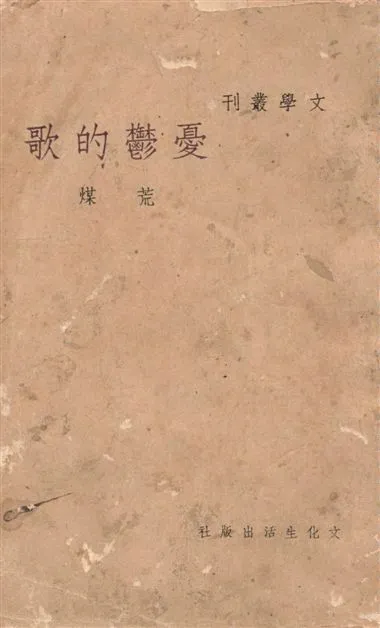 文學叢刊
憂鬱的歌
荒煤
文化生活出版社